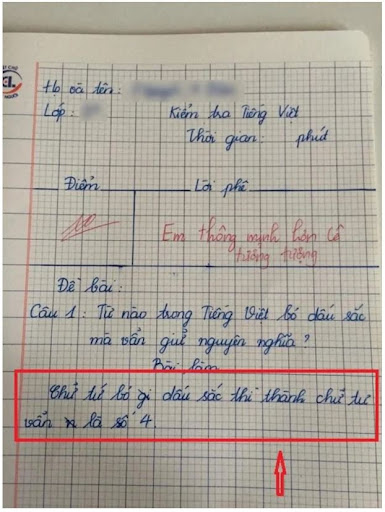 Họ và tên :
Lớp :
Kiểm tra Tiếng Việt
Thời gian : phút
Điểm
Lời phê
10
Em thông minh hơn Cô
tưởng tượng
Đề bài :
Câu 1 : Từ nào trong Tiếng Việt bỏ dấu sắc
mà vẫn giữ nguyên nghĩa ?
Bài làm
Chữ tứ bỏ gi dấu sắc thì thành chữ tư
vẫn là số 4.